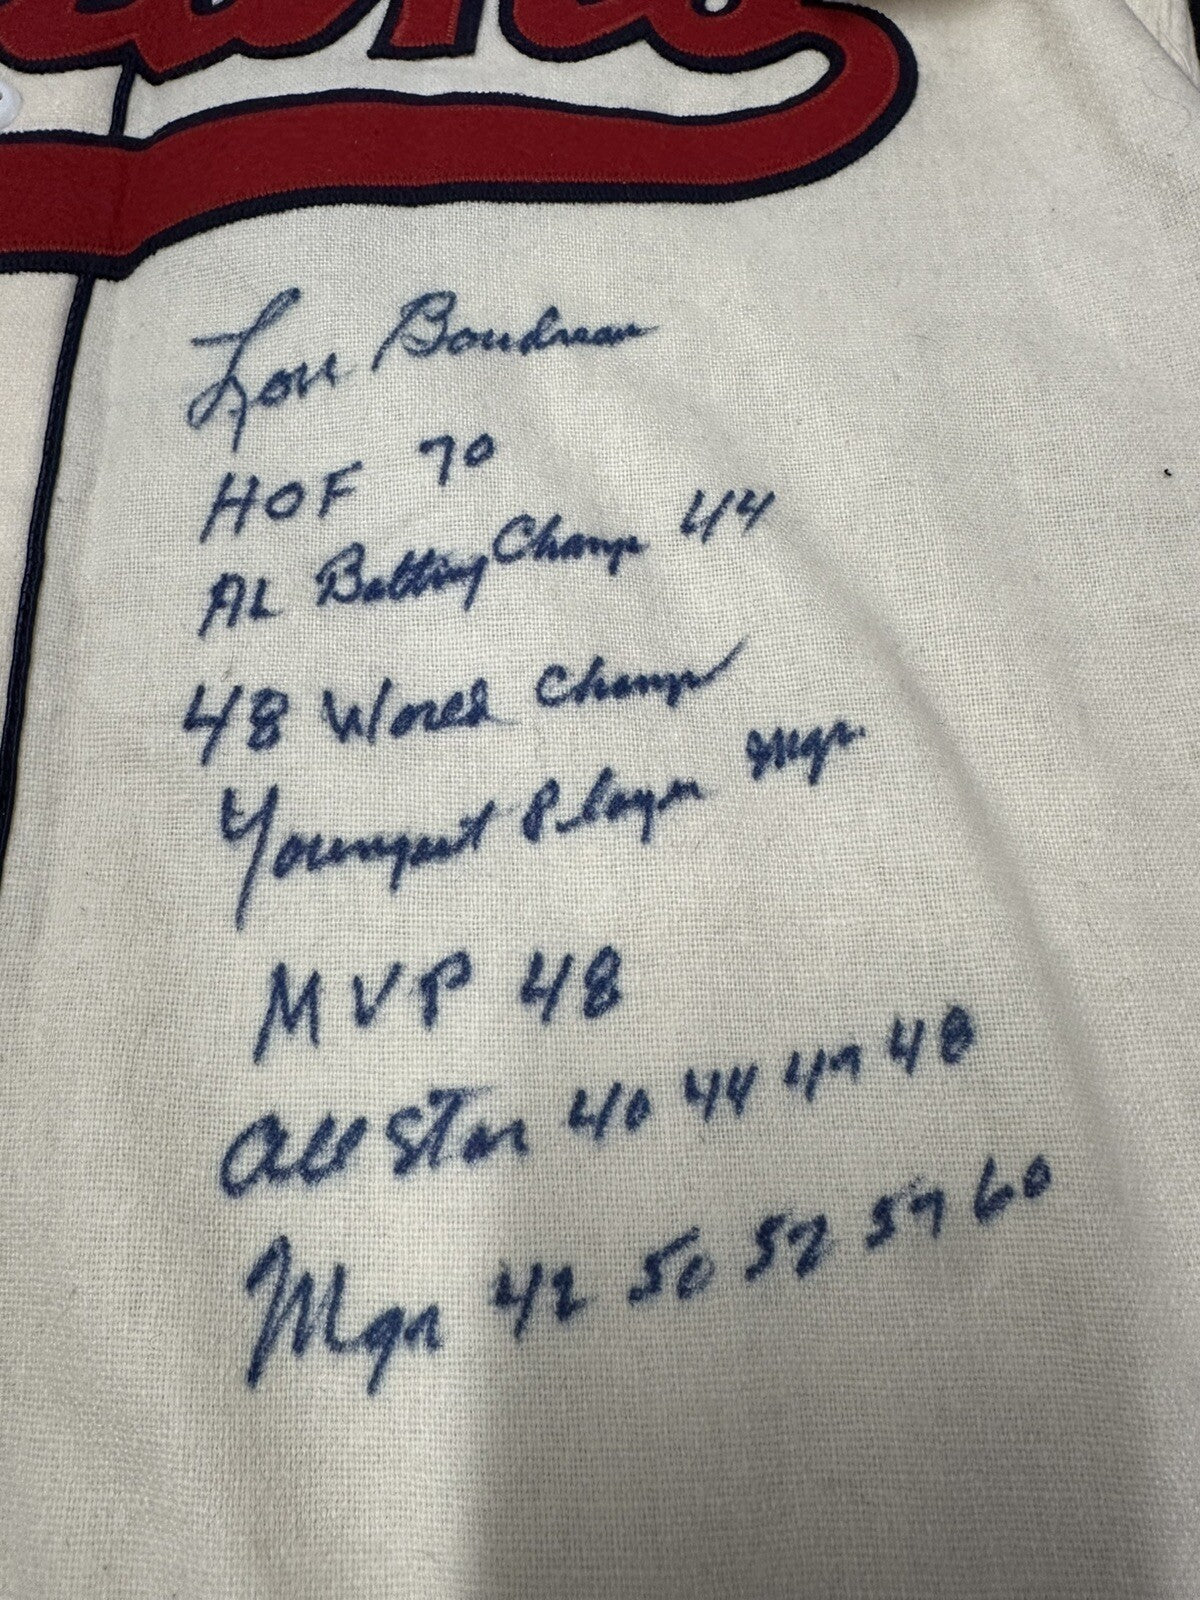 Lou Boudreau
HOF 70
AL Batting Champ 44
48 World Champs
Youngest Player Mgr.
MVP 48
All Star 40 44 47 48
Mgr 42 50 52 57 60